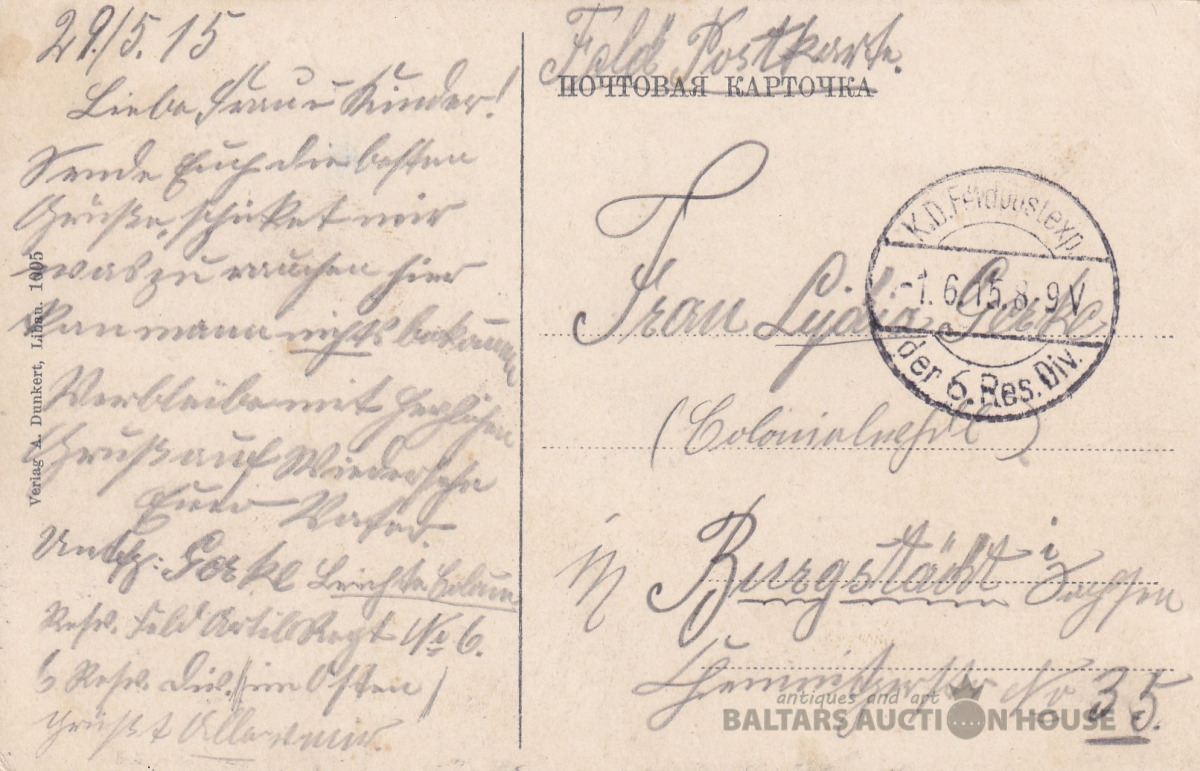 29./5. 15
Liebe Frau u Kinder!
Sende Euch die besten
Grüße, schicket mir
was zu rauchen hier
kan mann nichts bekomm
Verbleibe mit herzlichen
Gruß auf Wiedersehn
Euer Vater
Untffz: Gorke Leichte Colum
Resv. Feld Artill Regt No 6.
6 Resv. Div. im Osten
Grüßt Alle von mir
Verlag A. Dunkert, Libau. 1005
Feld Postkarte.
ПОЧТОВАЯ КАРТОЧКА
K.D. Feldpostexp.
-1. 6. 15. 8-9 V
der 6. Res. Div.
Frau Lydia Gorke
in Burgstädt i Sachsen
Chemnitzerstr No 35.
antiques and art
BALTARS AUCTION HOUSE